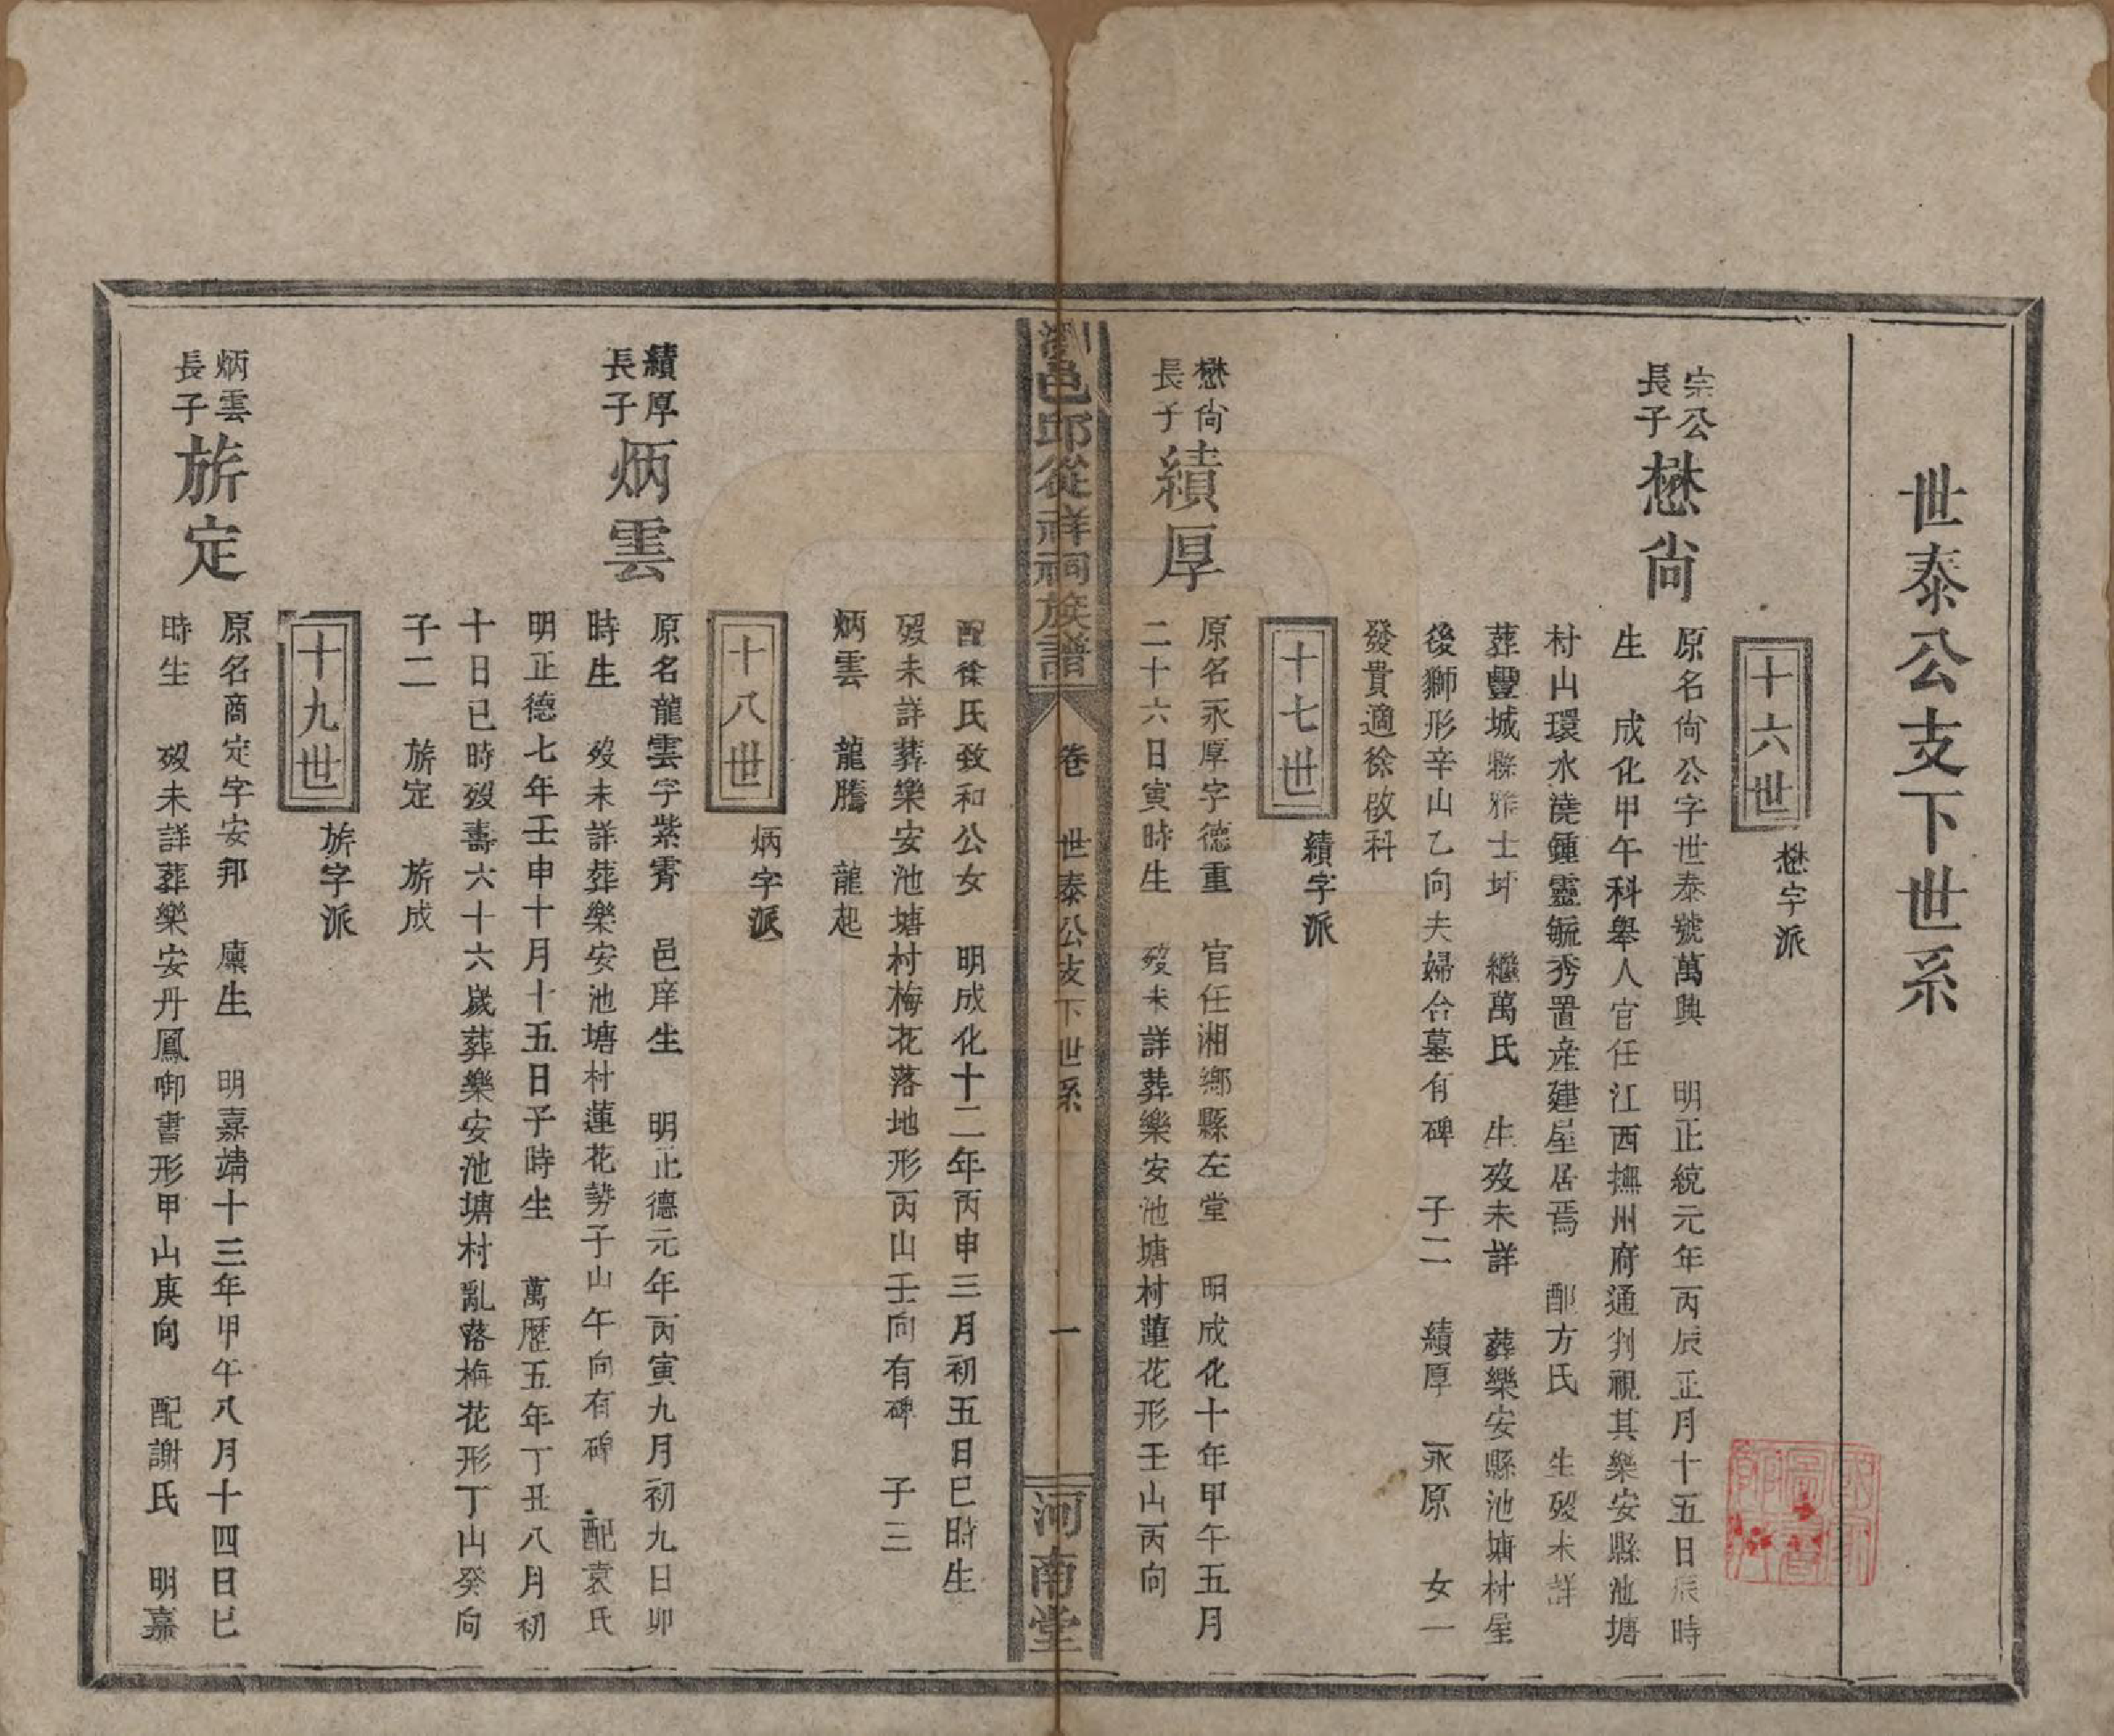 世泰公支下世系
十六世
懋字派
宗公
長子
懋尙
原名尙公字世泰號萬興　明正統元年丙辰正月十五日辰時
生　成化甲午科舉人官任江西撫州府通判視其樂安縣池塘
村山環水澆鍾靈毓秀置産建屋居焉　配方氏　生歿未詳
葬豐城縣雅士圤　繼萬氏　生歿未詳　葬樂安縣池塘村屋
後獅形辛山乙向夫婦合墓有碑　子二　績厚　永原　女一
發貴適徐啟科
十七世
績字派
懋尙
長子
績厚
原名永厚字德重　官任湘鄉縣左堂　明成化十年甲午五月
二十六日寅時生　歿未詳葬樂安池塘村蓮花形壬山丙向
瀏邑邱從祥祠族譜
卷　世泰公支下世系
一
河南堂
配徐氏致和公女　明成化十二年丙申三月初五日巳時生
歿未詳葬樂安池塘村梅花落地形丙山壬向有碑　子三
炳雲　龍騰　龍起
十八世
炳字派
績厚
長子
炳雲
原名龍雲字紫霄　邑庠生　明正德元年丙寅九月初九日卯
時生　歿未詳葬樂安池塘村蓮花勢子山午向有碑　配袁氏
明正德七年壬申十月十五日子時生　萬歷五年丁丑八月初
十日巳時歿壽六十六歲葬樂安池塘村亂落梅花形丁山癸向
子二　旂定　旂成
十九世
旂字派
炳雲
長子
旂定
原名商定字安邦　廩生　明嘉靖十三年甲午八月十四日巳
時生　歿未詳葬樂安丹鳳啣書形甲山庚向　配謝氏　明嘉